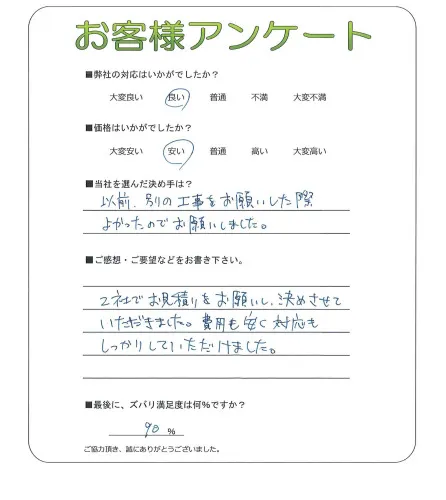 お客様アンケート
■弊社の対応はいかがでしたか？
大変良い 良い 普通 不満 大変不満
■価格はいかがでしたか？
大変安い 安い 普通 高い 大変高い
■当社を選んだ決め手は？
以前、別の工事をお願いした際
よかったのでお願いしました。
■ご感想・ご要望などをお書き下さい。
2社でお見積りをお願いし、決めさせて
いただきました。費用も安く対応も
しっかりしていただけました。
■最後に、ズバリ満足度は何%ですか？
90 %
ご協力頂き、誠にありがとうございました。